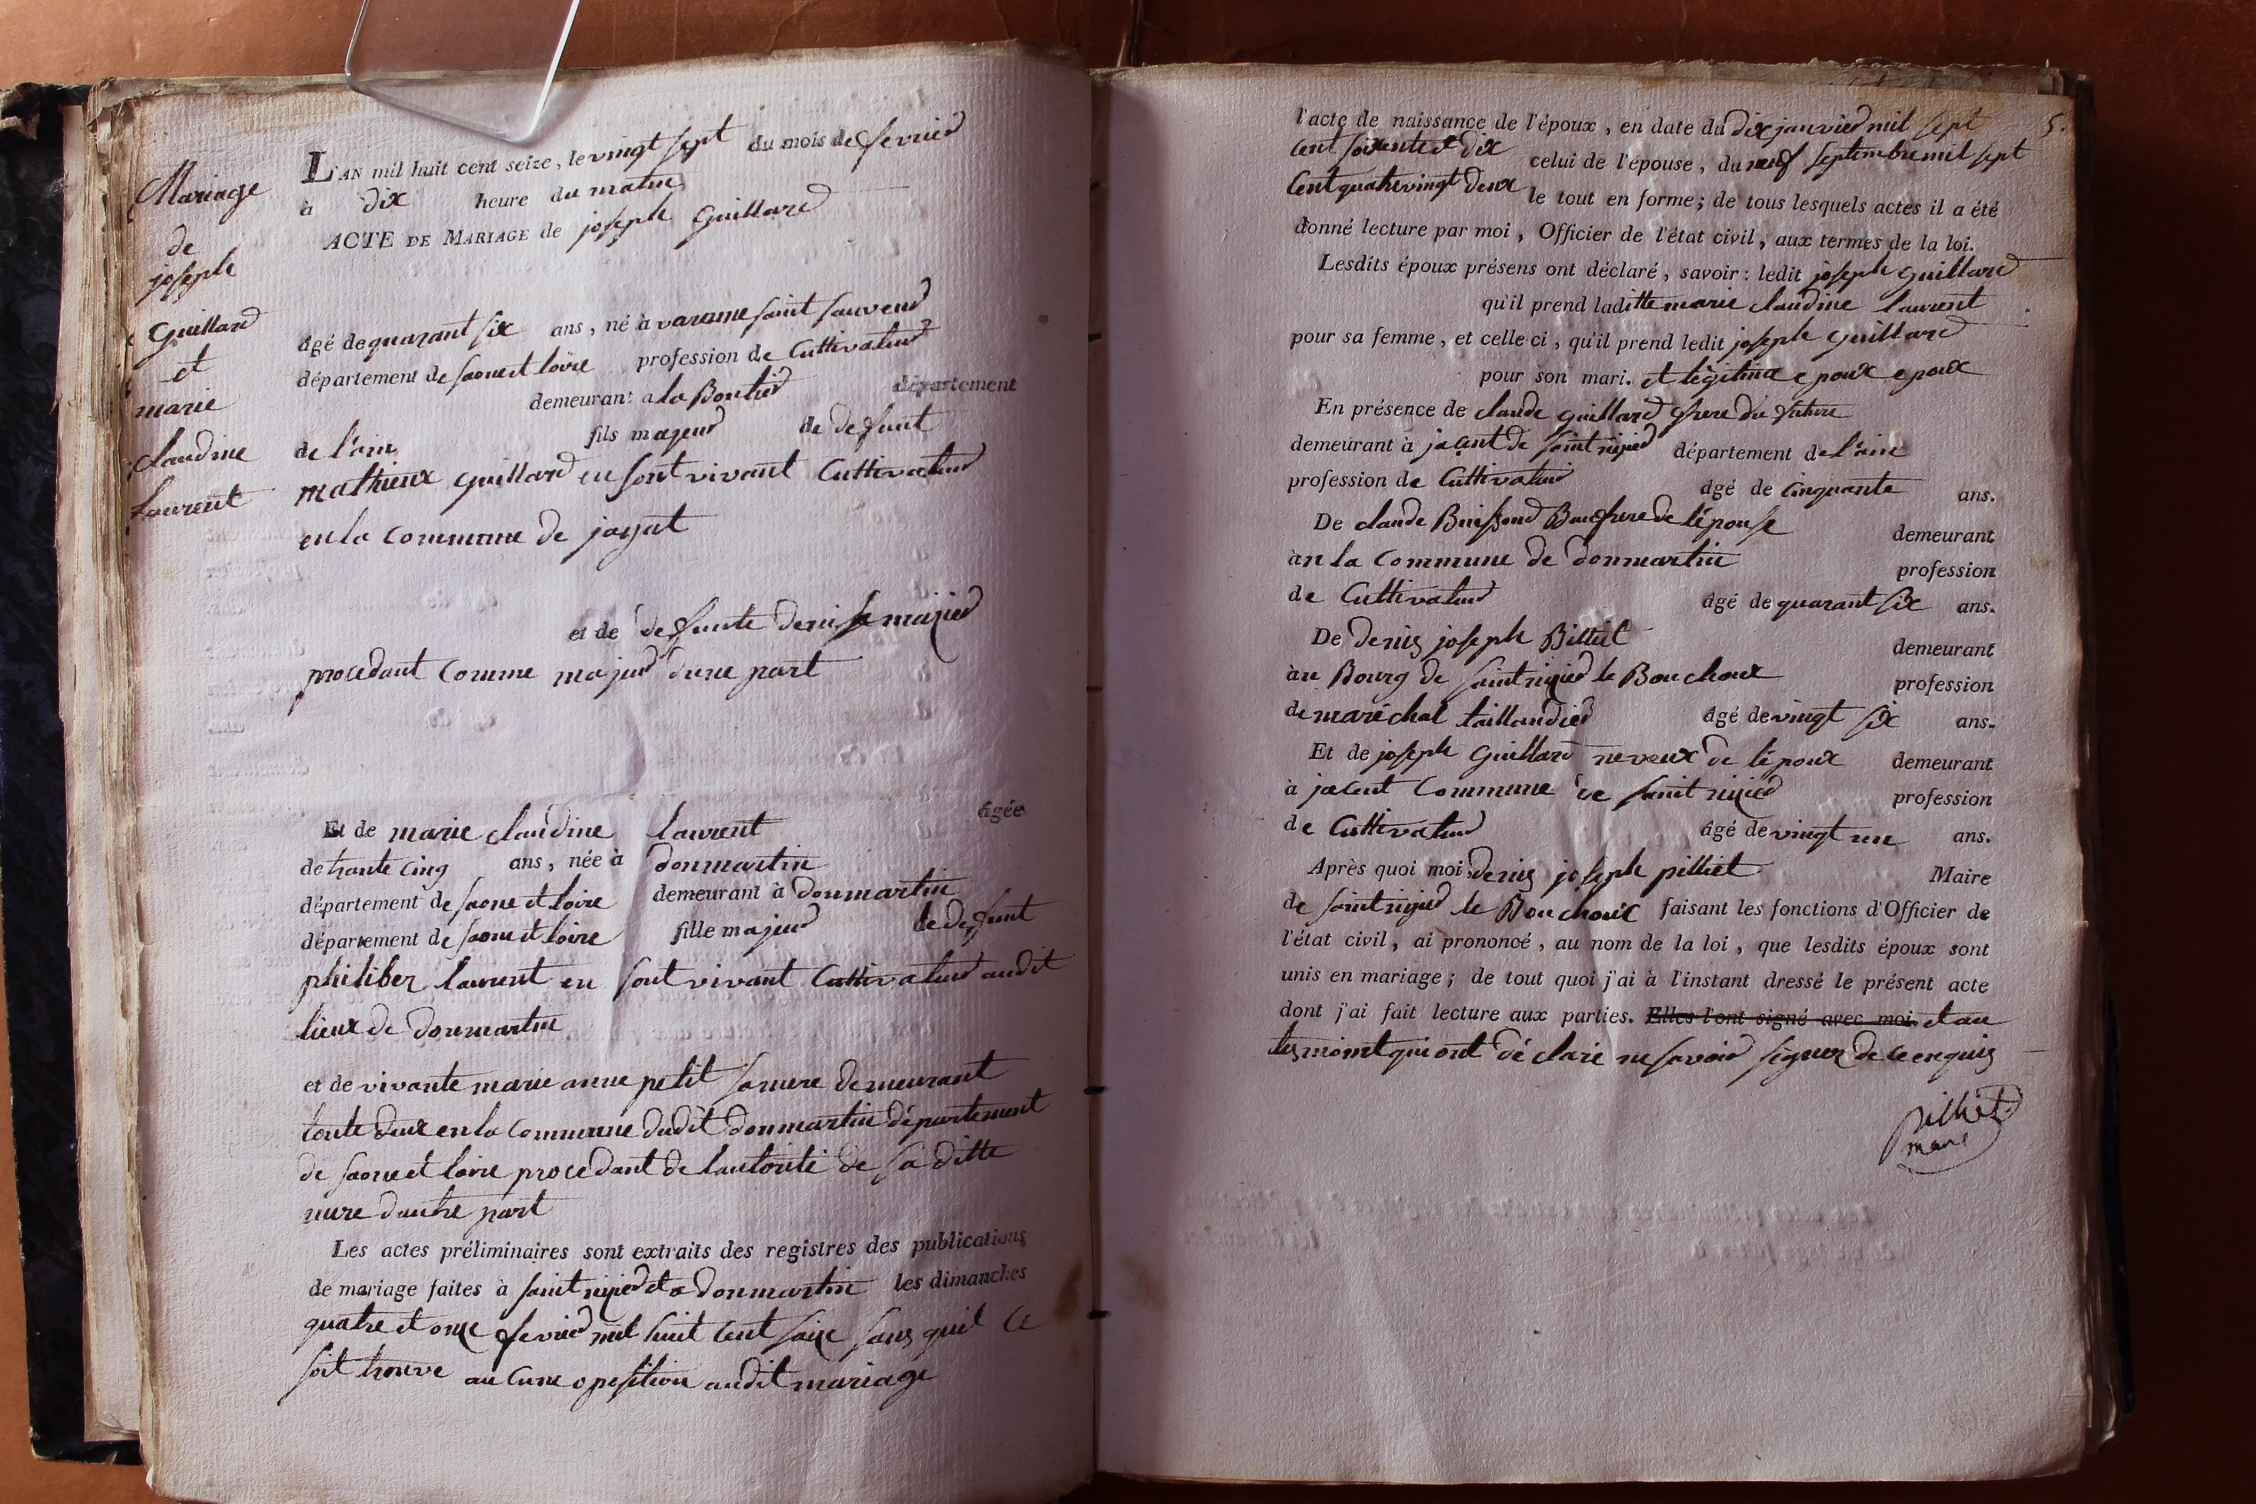 Mariage
de
joseph
Guillard
et
marie
claudine
laurent
L'AN mil huit cent seize, le vingt sept du mois de fevrier
à dix heure du matin
ACTE DE MARIAGE de joseph Guillard
âgé de quarant six ans, né à varenne saint sauveur
département de saone et loire profession de Cultivateur
demeurant a la Boutier département
de l'ain fils majeur de defunt
mathieux guillard en sont vivant Cultivateur
en la commune de jayat
et de defunte denise majier
procedant comme majeur d'une part
Et de marie claudine laurent âgée
de trante cinq ans, née à donmartin
département de saone et loire demeurant à donmartin
département de saone et loire fille majeur de defunt
philiber laurent en sont vivant Cultivateur audit
lieux de donmartin
et de vivante marie anne petit sa mere demeurant
toute deux en la commune dudit donmartin département
de saone et loire procedant de lautorité de sa ditte
mere dautre part
Les actes préliminaires sont extraits des registres des publications
de mariage faites à saint nizier et a donmartin les dimanches
quatre et onze fevrier mil huit cent saize sans quil ce
soit trouve aucune oposition audit mariage
5.
l'acte de naissance de l'époux, en date du dix janvier mil sept
cent soixante et dix celui de l'épouse, du neuf septembre mil sept
Cent quatrevingt deux le tout en forme; de tous lesquels actes il a été
donné lecture par moi, Officier de l'état civil, aux termes de la loi.
Lesdits époux présens ont déclaré, savoir: ledit joseph guillard
qu'il prend laditte marie claudine laurent
pour sa femme, et celle ci, qu'il prend ledit joseph guillard
pour son mari. et légitime epoux epoux
En présence de claude guillard frere du future
demeurant à jacent de saint nizier département de l'ain
profession de Cultivateur âgé de cinquante ans.
De claude Buisson Baufrere de lépouse demeurant
à en la commune de donmartin profession
de Cultivateur âgé de quarant six ans.
De denis joseph Billiet demeurant
à u Bourg de saint nizier le Bouchoux profession
de maréchal taillandier âgé de vingt six ans.
Et de joseph Guillard neveux de lépoux demeurant
à jacent commune de saint nizier profession
de Cultivateur âgé de vingt un ans.
Après quoi moi, denis joseph pilliet Maire
de saint nizier le Bouchoux faisant les fonctions d'Officier de
l'état civil, ai prononcé, au nom de la loi, que lesdits époux sont
unis en mariage; de tout quoi j'ai à l'instant dressé le présent acte
dont j'ai fait lecture aux parties. Elles l'ont signé avec moi et au
tesmoint qui ont déclaré ne savoir signer de ce enquis
pilliet
maire